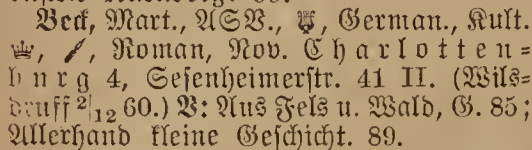 Beck, Mart., ASV., German., Kult.
Roman, Nov. Charlotten=
burg 4, Sesenheimerstr. 41 II. (Wils=
druff 2/12 60.) V: Aus Fels u. Wald, G. 85;
Allerhand kleine Geschicht. 89.